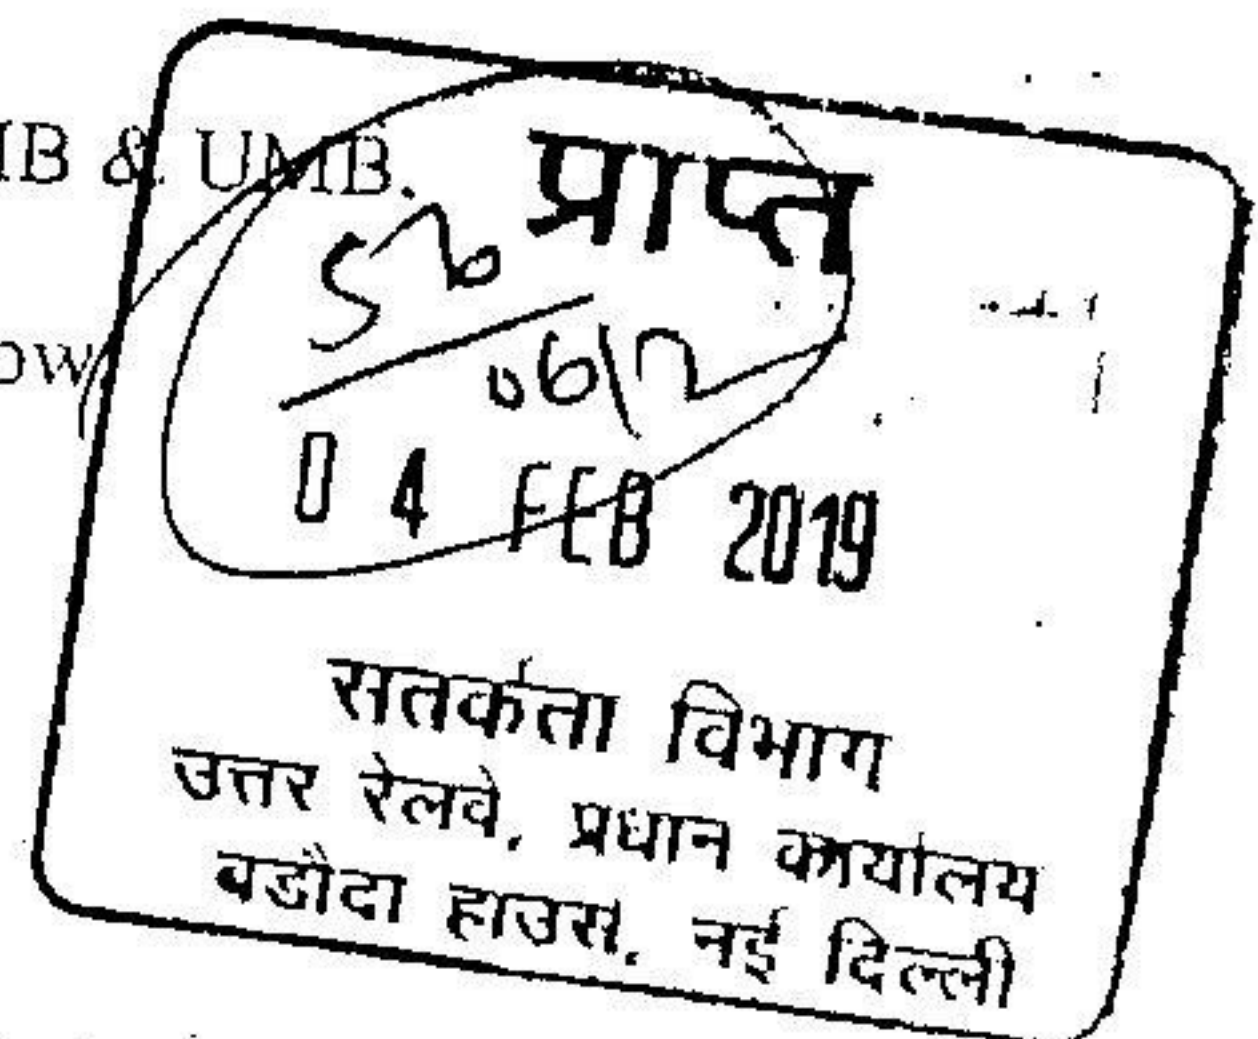 & UMB.
प्राप्त
04 FEB 2019
सतर्कता विभाग
उत्तर रेलवे, प्रधान कार्यालय
बडौदा हाउस, नई दिल्ली